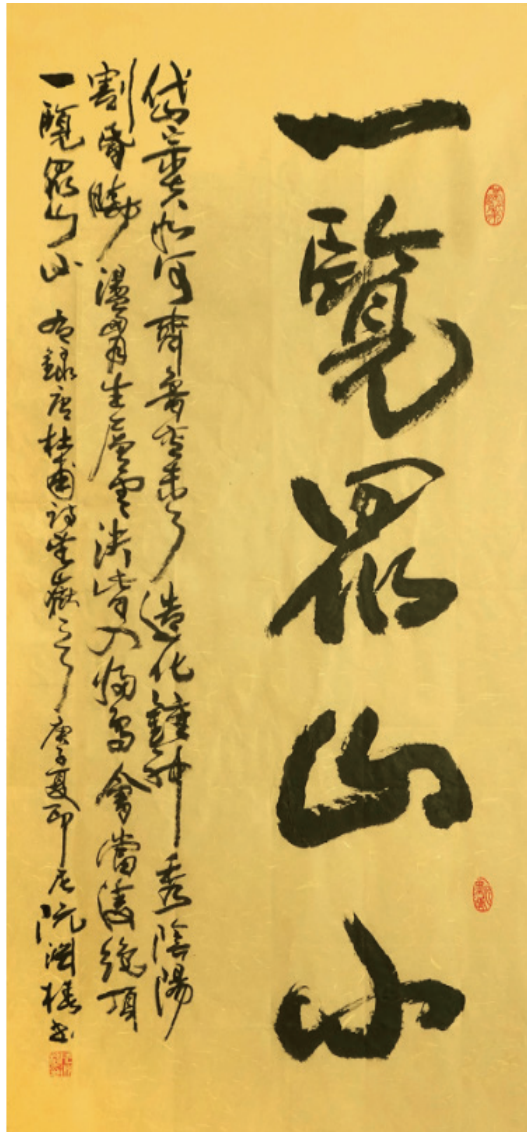 一覽眾山小
岱宗夫如何齊魯青未了造化鍾神秀陰陽
割昏曉盪胸生層雲決眥入歸鳥會當凌絕頂
一覽眾山小 右錄唐杜甫詩望嶽之句 庚子夏印尼阮淵椿書